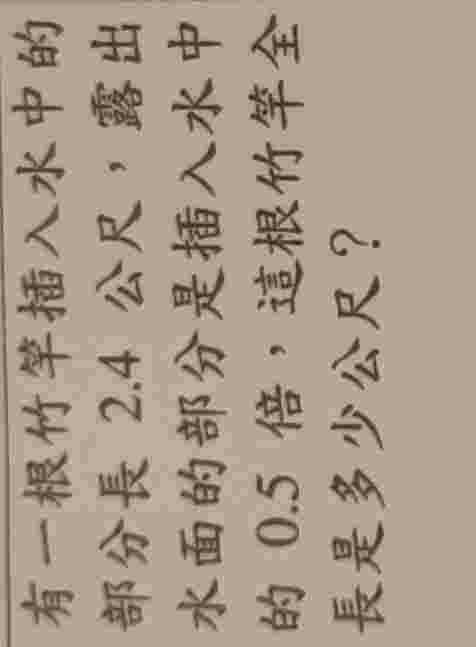 有一根竹竿插入水中的
部分長 2.4 公尺，露出
水面的部分是插入水中
的 0.5 倍，這根竹竿全
長是多少公尺？